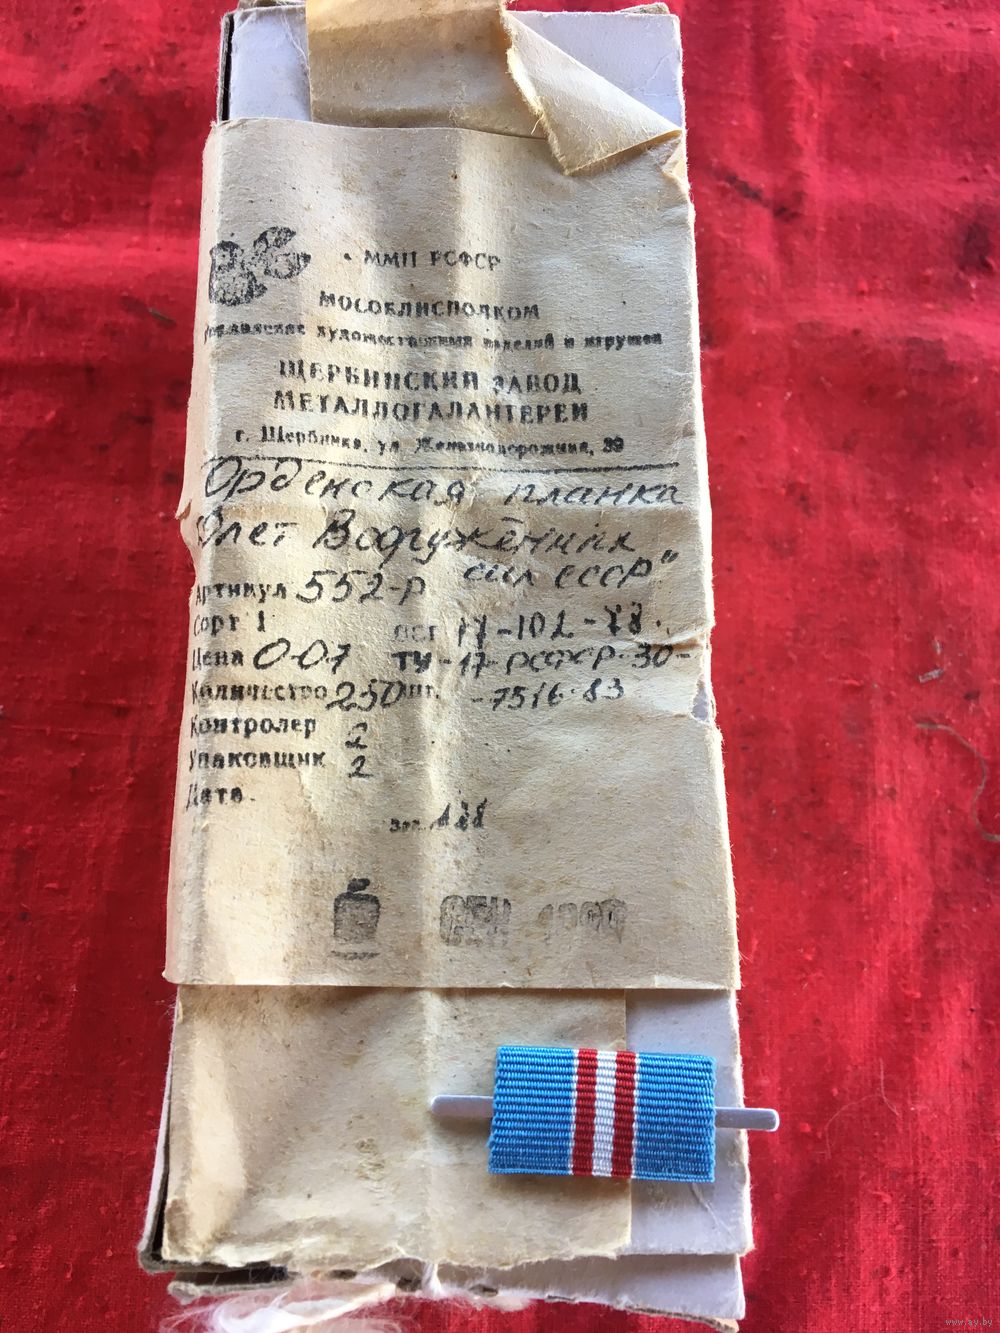 ММП РСФСР
МОСОБЛИСПОЛКОМ
Управление художественных изделий и игрушек
ЩЕРБИНСКИЙ ЗАВОД
МЕТАЛЛОГАЛАНТЕРЕИ
г. Щербинка, ул. Железнодорожная, 39
Орденская планка
лет Вооружённых
сил СССР"
Артикул 552-р
Сорт 1 ОСТ 17-102-78.
Цена 0-07 ТУ-17-РСФСР-30-
Количество 250 шт. -7516-83
Контролер 2
Упаковщик 2
Дата
Зак. 128
СЕН 1990
www.ay.by